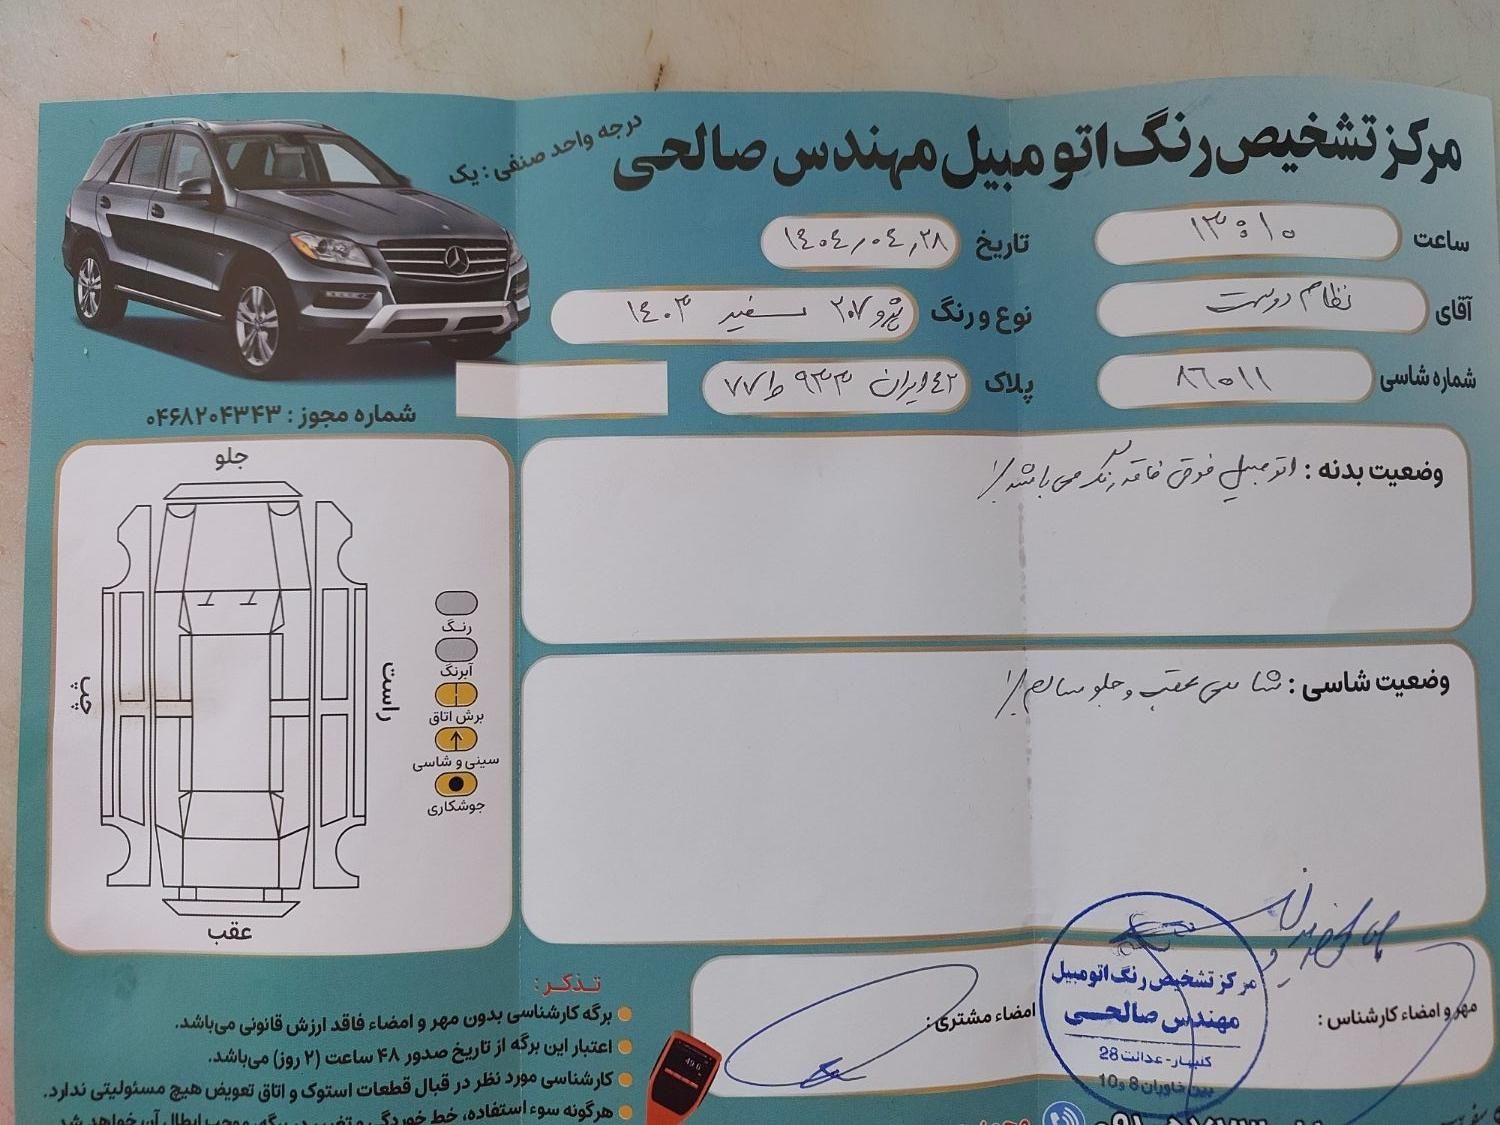 مرکز تشخیص رنگ اتومبیل مهندس صالحی
درجه واحد صنفی : یک
ساعت ۱۳:۱۰
تاریخ ۱۴۰۴,۰۴,۲۸
آقای نظام دوست
نوع و رنگ پژو ۲۰۷ سفید ۱۴۰۳
شماره شاسی ۸۶۰۱۱
پلاک ۴۲ ایران ۹۳۳ ط ۷۷
شماره مجوز : ۰۴۶۸۲۰۴۳۴۳
وضعیت بدنه : اتومبیل فوق فاقد رنگ می باشد
وضعیت شاسی : شاسی عقب و جلو سالم
جلو
چپ
راست
عقب
رنگ
آبرنگ
برش اتاق
سینی و شاسی
جوشکاری
مهر و امضاء کارشناس :
امضاء مشتری :
مرکز تشخیص رنگ اتومبیل
مهندس صالحی
گلبهار-عدالت 28
بین خاوران 8 و 10
تذکر :
برگه کارشناسی بدون مهر و امضاء فاقد ارزش قانونی می‌باشد.
اعتبار این برگه از تاریخ صدور ۴۸ ساعت (۲ روز) می‌باشد.
کارشناسی مورد نظر در قبال قطعات استوک و اتاق تعویض هیچ مسئولیتی ندارد.
هرگونه سوء استفاده، خط خوردگی و تغییر در برگه، موجب ابطال آن خواهد شد